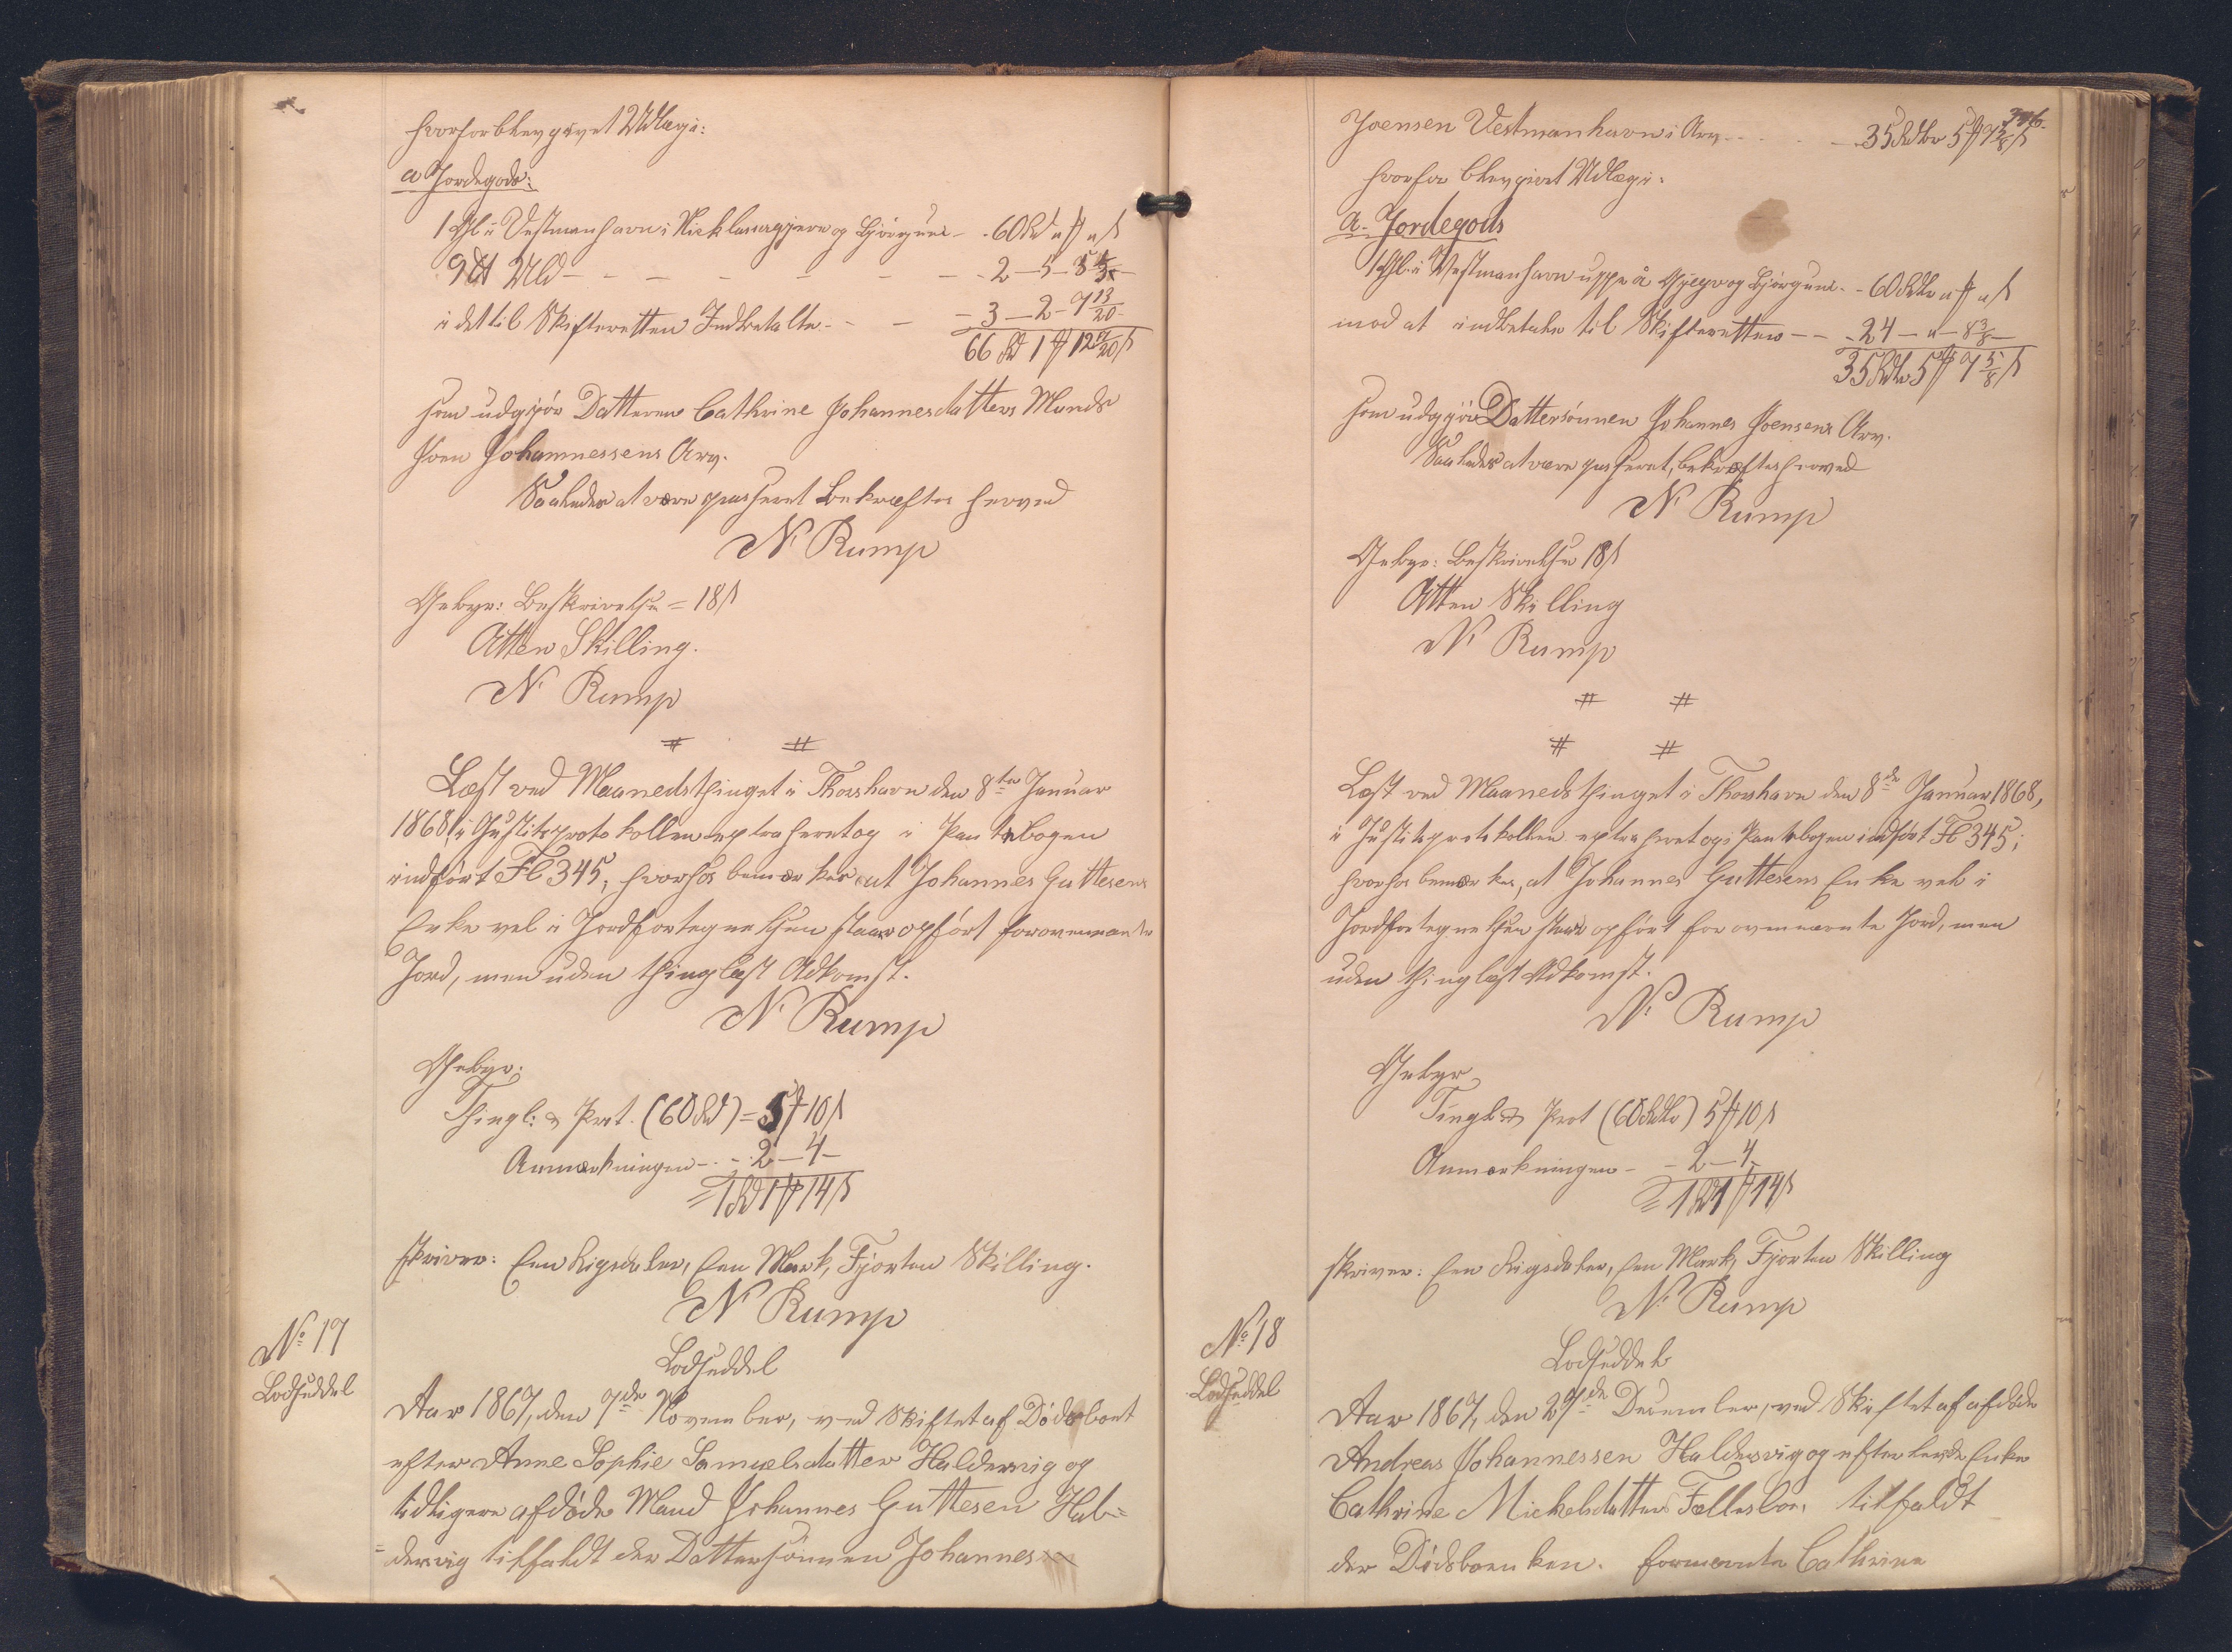 hvorfor blev givet Udlæg i:
a Jordegods:
1 Gl. i Vestmanhavn i Nicklasargjerv og Gjörgum - - 60 Rd " ℔ " ß
9 ℔ Uld - - - - - - - 2 - 5 - 5
i det til Skifteretten Indbetalte - - - 3 - 2 - 9 13/20
66 Rd 1 ℔ 12 9/20 ß
som udgjör Datteren Cathrine Johannesdatters Mands
Joen Johannessens Arv.
Saaledes at være passeret bekræftes herved
N. Rump
Gebyr: Beskrivelsen = 18 ß
Atten Skilling.
N. Rump
# #
Læst ved Maanedsthinget i Thorshavn den 8de Januar
1868, i Justitsprotokollen extraheret og i Pantebogen
indfört Fl 345, hvorhos bemærkes at Johannes Guttesens
Enke vel i Jordfortegnelsen staar opfört for ovennævnte
Jord, men uden thinglæst Adkomst.
N. Rump
Gebyr:
Thingl: & Prot. (60 Rd) = 5 ℔ 10 ß
Anmærkningen - - 2 - 4 -
= 1 Rd 1 ℔ 14 ß
skriver: Een Rigsdaler, Een Mark, Fjorten Skilling.
N. Rump
No 17
Lodseddel
Lodseddel
Aar 1867, den 7de November, ved Skiftet af Dödsboet
efter Anne Sophie Samuelsdatter Haldersvig og
tidligere afdöde Mand Johannes Guttesen Hal=
=dersvig tilfaldt der Dattersönnen Johannes
346.
Joensen Vestmanhavn i Arv - - - - 35 Rdlr 5 ℔ 7 5/8 ß
hvorfor blev givet Udlæg i:
a. Jordegods
1 Gl. i Vestmanhavn uppe á Gjegv og Gjörgum - - 60 Rdlr " ℔ " ß
mod at indbetale til Skifteretten - - - 24 - " - 8 3/8 -
35 Rdlr 5 ℔ 7 5/8 ß
som udgjör Dattersönnen Johannes Joensens Arv.
Saaledes at være passeret, bekræftes herved
N. Rump
Gebyr: Beskrivelsen 18 ß
Atten Skilling
N. Rump
# #
# #
Læst ved Maanedsthinget i Thorshavn den 8de Januar 1868,
i Justitsprotokollen extraheret og i Pantebogen indfört Fl 345;
hvorhos bemærkes, at Johannes Guttesens Enke vel i
Jordfortegnelsen staar opfört for ovennævnte Jord, men
uden thinglæst Adkomst.
N. Rump
Gebyr
Tingl & Prot (60 Rdlr) 5 ℔ 10 ß
Anmærkningen - - 2 - 4
= 1 Rd 1 ℔ 14 ß
skriver: Een Rigsdaler, Een Mark, Fjorten Skilling
N. Rump
No 18
Lodseddel
Lodseddel
Aar 1867, den 27de December, ved Skiftet af afdöde
Andreas Johannessen Haldersvig og efterlevende Enke
Cathrine Mickelsdatters Fællesbo, tilfaldt
der Dödsboenken. fornævnte Cathrine